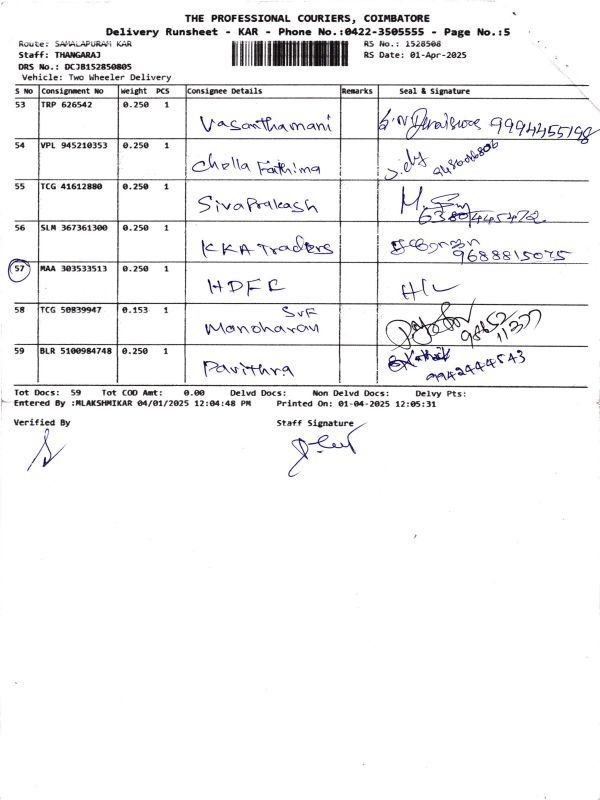 THE PROFESSIONAL COURIERS, COIMBATORE
Delivery Runsheet - KAR - Phone No.:0422-3505555 - Page No.:5
Route: SAMALAPURAM KAR
RS No.: 1528508
Staff: THANGARAJ
RS Date: 01-Apr-2025
DRS No.: DCJB152850805
Vehicle: Two Wheeler Delivery
S No Consignment No Weight PCS Consignee Details Remarks Seal & Signature
53 TRP 626542 0.250 1
Vasanthamani 9994455198
54 VPL 945210353 0.250 1
Chella Fathima
55 TCG 41612880 0.250 1
Sivaprakash
6380445472
56 SLM 367361300 0.250 1
KKA Traders
9688815075
57 MAA 303533513 0.250 1
HDFC
58 TCG 50839947 0.153 1
Manoharan
59 BLR 5100984748 0.250 1
Pavithra
9942444543
Tot Docs: 59 Tot COD Amt: 0.00 Delvd Docs: Non Delvd Docs: Delvy Pts:
Entered By :MLAKSHMIKAR 04/01/2025 12:04:48 PM Printed On: 01-04-2025 12:05:31
Verified By Staff Signature